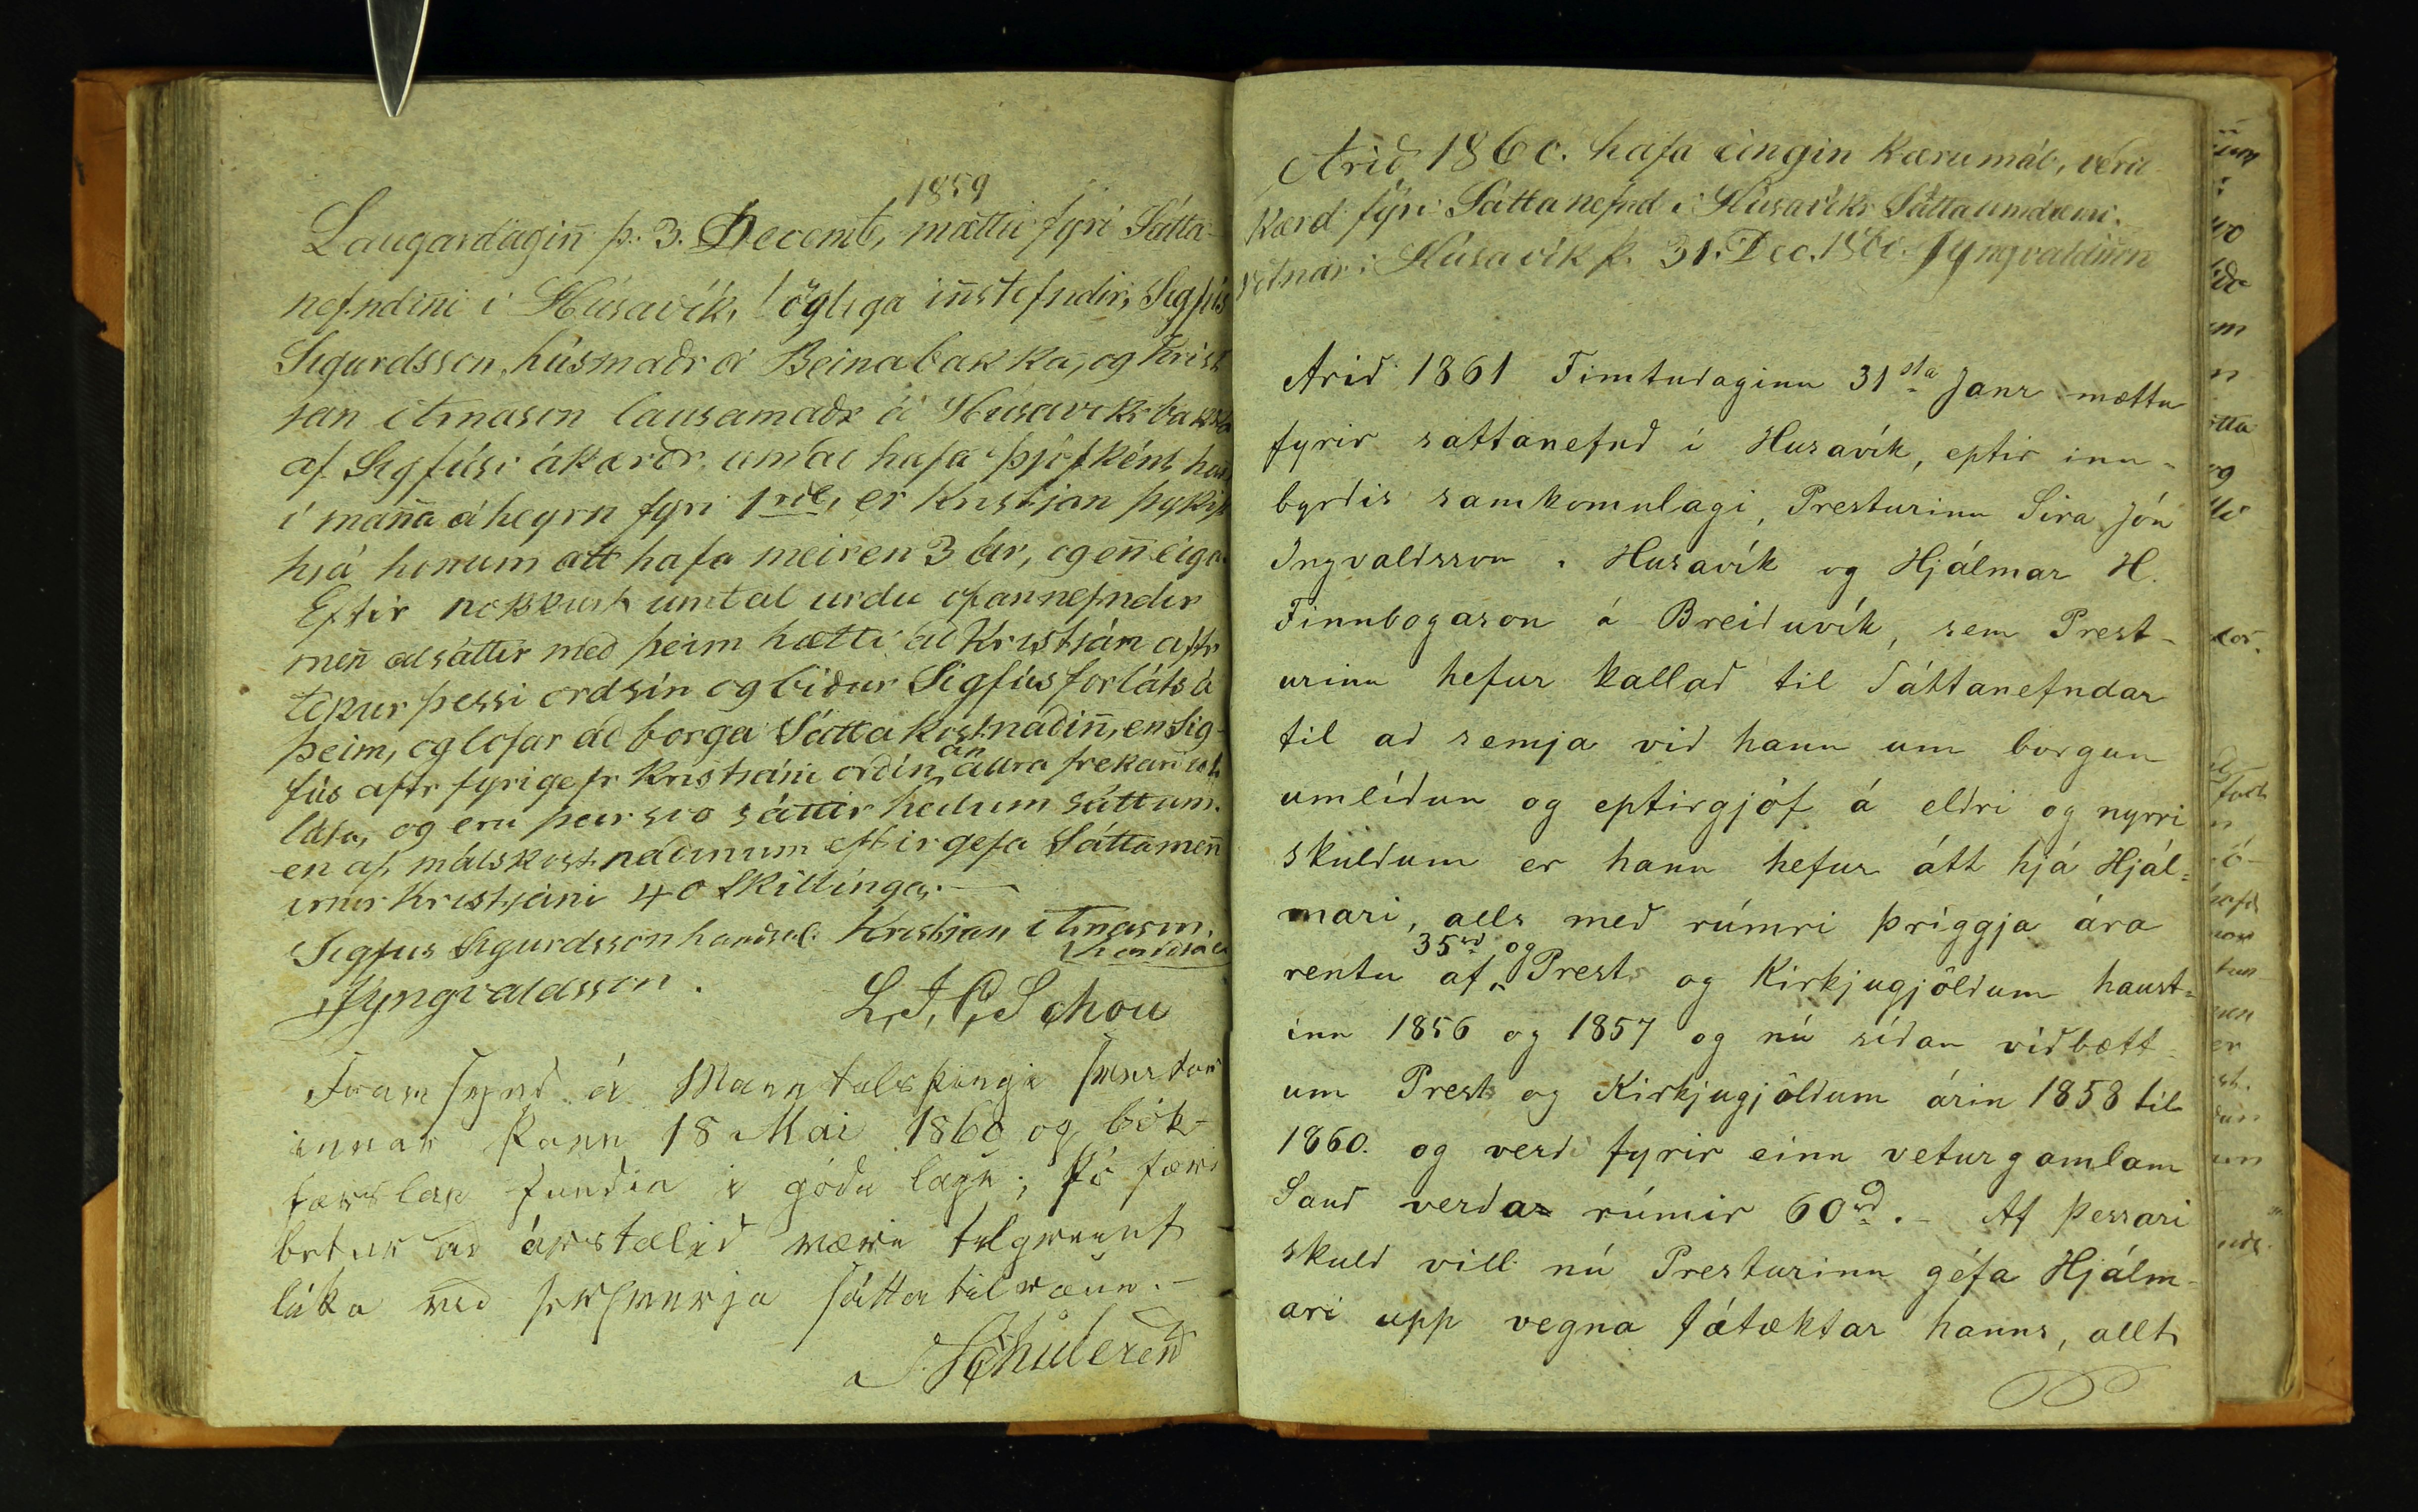 1859
Laugardaginn þ. 3. Decemb, mættu fyri Sátta-
nefndinni i Húsavík, lögliga innstefndir, Sigfús
Sigurdsson, húsmaðr á Beinabakka, og Krist
ján Arnason lausamaðr á Húsavíkrbakka
af Sigfúsi ákærðr um að hafa þjófként hann
i manna áheyrn fyri 1 rdl, er Kristjan þykist
hjá honum átt hafa meir en 3 ár, og enn eiga.
Eftir nokkurt umtal urdu ofannefndir
menn alsáttir með þeim hætti að Kristján aftr
tekur þessi ord sín og biður Sigfús forláts á
þeim, og lofar að borga Sáttakostnaðinn, en Sig-
fús aftr fyrigefr Kristjáni orðin, án allra frekari
láta, og eru þeir svo sáttir heilum sáttum.
en af málskostnaðinum eftirgefa Sáttamenn
irnir Kristjáni 40 Skillinga.
Sigfus Sigurdsson handsal. Kristjan Arnason.
handsal
JYngvaldsson.
L, J, C, Schou
Framsynd á Manntalsþingi
innar þann 18 Mai 1860 og bók-
færslan fundin i góðu lagi; þó færi
betur að árstalið væri tilgreint
líka við sérhverja sáttatilraun.
Schulesen
Arið 1860. hafa eingin Kærumál, verið
Kærd fyri Sáttanefnd i Húsavíkr Sáttaumdæmi.
vitnar: Húsavík þ. 31. Dec. 1860. JYngvaldsson
Arið 1861 Fimtudaginn 31sta Janr mættu
fyrir sattanefnd í Husavík, eptir inn-
byrðis samkomulagi, Presturinn Sira Jón
Ingvaldsson í Husavík og Hjálmar H.
Finnbogason á Breiduvík, sem Prest-
urinn hefur kallað til Sáttanefndar
til að semja við hann um borgun
umlíðun og eptirgjöf á eldri og nyrri
skuldum er hann hefur átt hjá Hjál-
mari, alls með rúmri þriggja ára
35rd og
rentu af Prests og Kirkjugjöldum haust-
inn 1856 og 1857 og nú síðan viðbætt-
um Prests og Kirkjugjöldum árin 1858 til
1860. og verdi fyrir einn veturgamlam
Sauð verdar rúmir 60rd. - Af þessari
skuld vill nú Presturinn géfa Hjálm-
ari upp vegna fátæktar hanns, allt